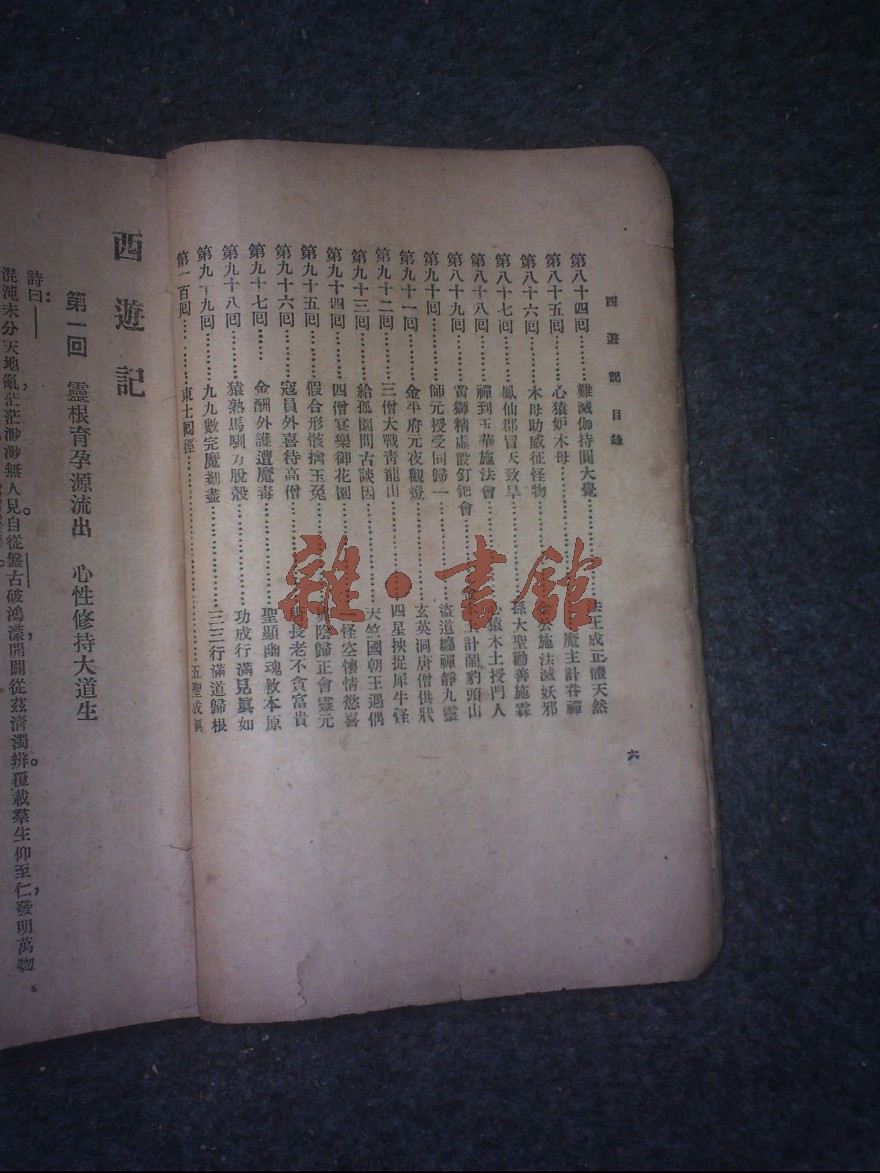 西遊記目錄
第八十四回⋯⋯⋯難滅伽持圓大覺⋯⋯⋯法王成正體天然
第八十五回⋯⋯⋯心猿妒木母⋯⋯⋯魔主計吞禪
第八十六回⋯⋯⋯木母助威征怪物⋯⋯⋯施法滅妖邪
第八十七回⋯⋯⋯鳳仙郡冒天致旱⋯⋯⋯孫大聖勸善施霖
第八十八回⋯⋯⋯禪到玉華施法會⋯⋯⋯心猿木土授門人
第八十九回⋯⋯⋯黃獅精虛設釘鈀會⋯⋯⋯計鬧豹頭山
第九十回⋯⋯⋯師元授受同歸一⋯⋯⋯盜道纏禪靜九靈
第九十一回⋯⋯⋯金平府元夜觀燈⋯⋯⋯玄英洞唐僧供狀
第九十二回⋯⋯⋯三僧大戰青龍山⋯⋯⋯四星挾捉犀牛怪
第九十三回⋯⋯⋯給孤園問古談因⋯⋯⋯天竺國朝王遇偶
第九十四回⋯⋯⋯四僧宴樂御花園⋯⋯⋯怪空懷情慾喜
第九十五回⋯⋯⋯假合形骸擒玉兔⋯⋯⋯陰歸正會靈元
第九十六回⋯⋯⋯寇員外喜待高僧⋯⋯⋯長老不貪富貴
第九十七回⋯⋯⋯金酬外護遭魔毒⋯⋯⋯聖顯幽魂救本原
第九十八回⋯⋯⋯猿熟馬馴方脫殼⋯⋯⋯功成行滿見眞如
第九十九回⋯⋯⋯九九數完魔剗盡⋯⋯⋯三三行滿道歸根
第一百回⋯⋯⋯東土⋯⋯⋯五聖成眞
六
西遊記
第一回 靈根育孕源流出 心性修持大道生
詩曰：——
混沌未分天地亂，茫茫渺渺無人見。自從盤古破鴻濛，開闢從茲清濁辨。覆載羣生仰至仁，發明萬物
雜·書館